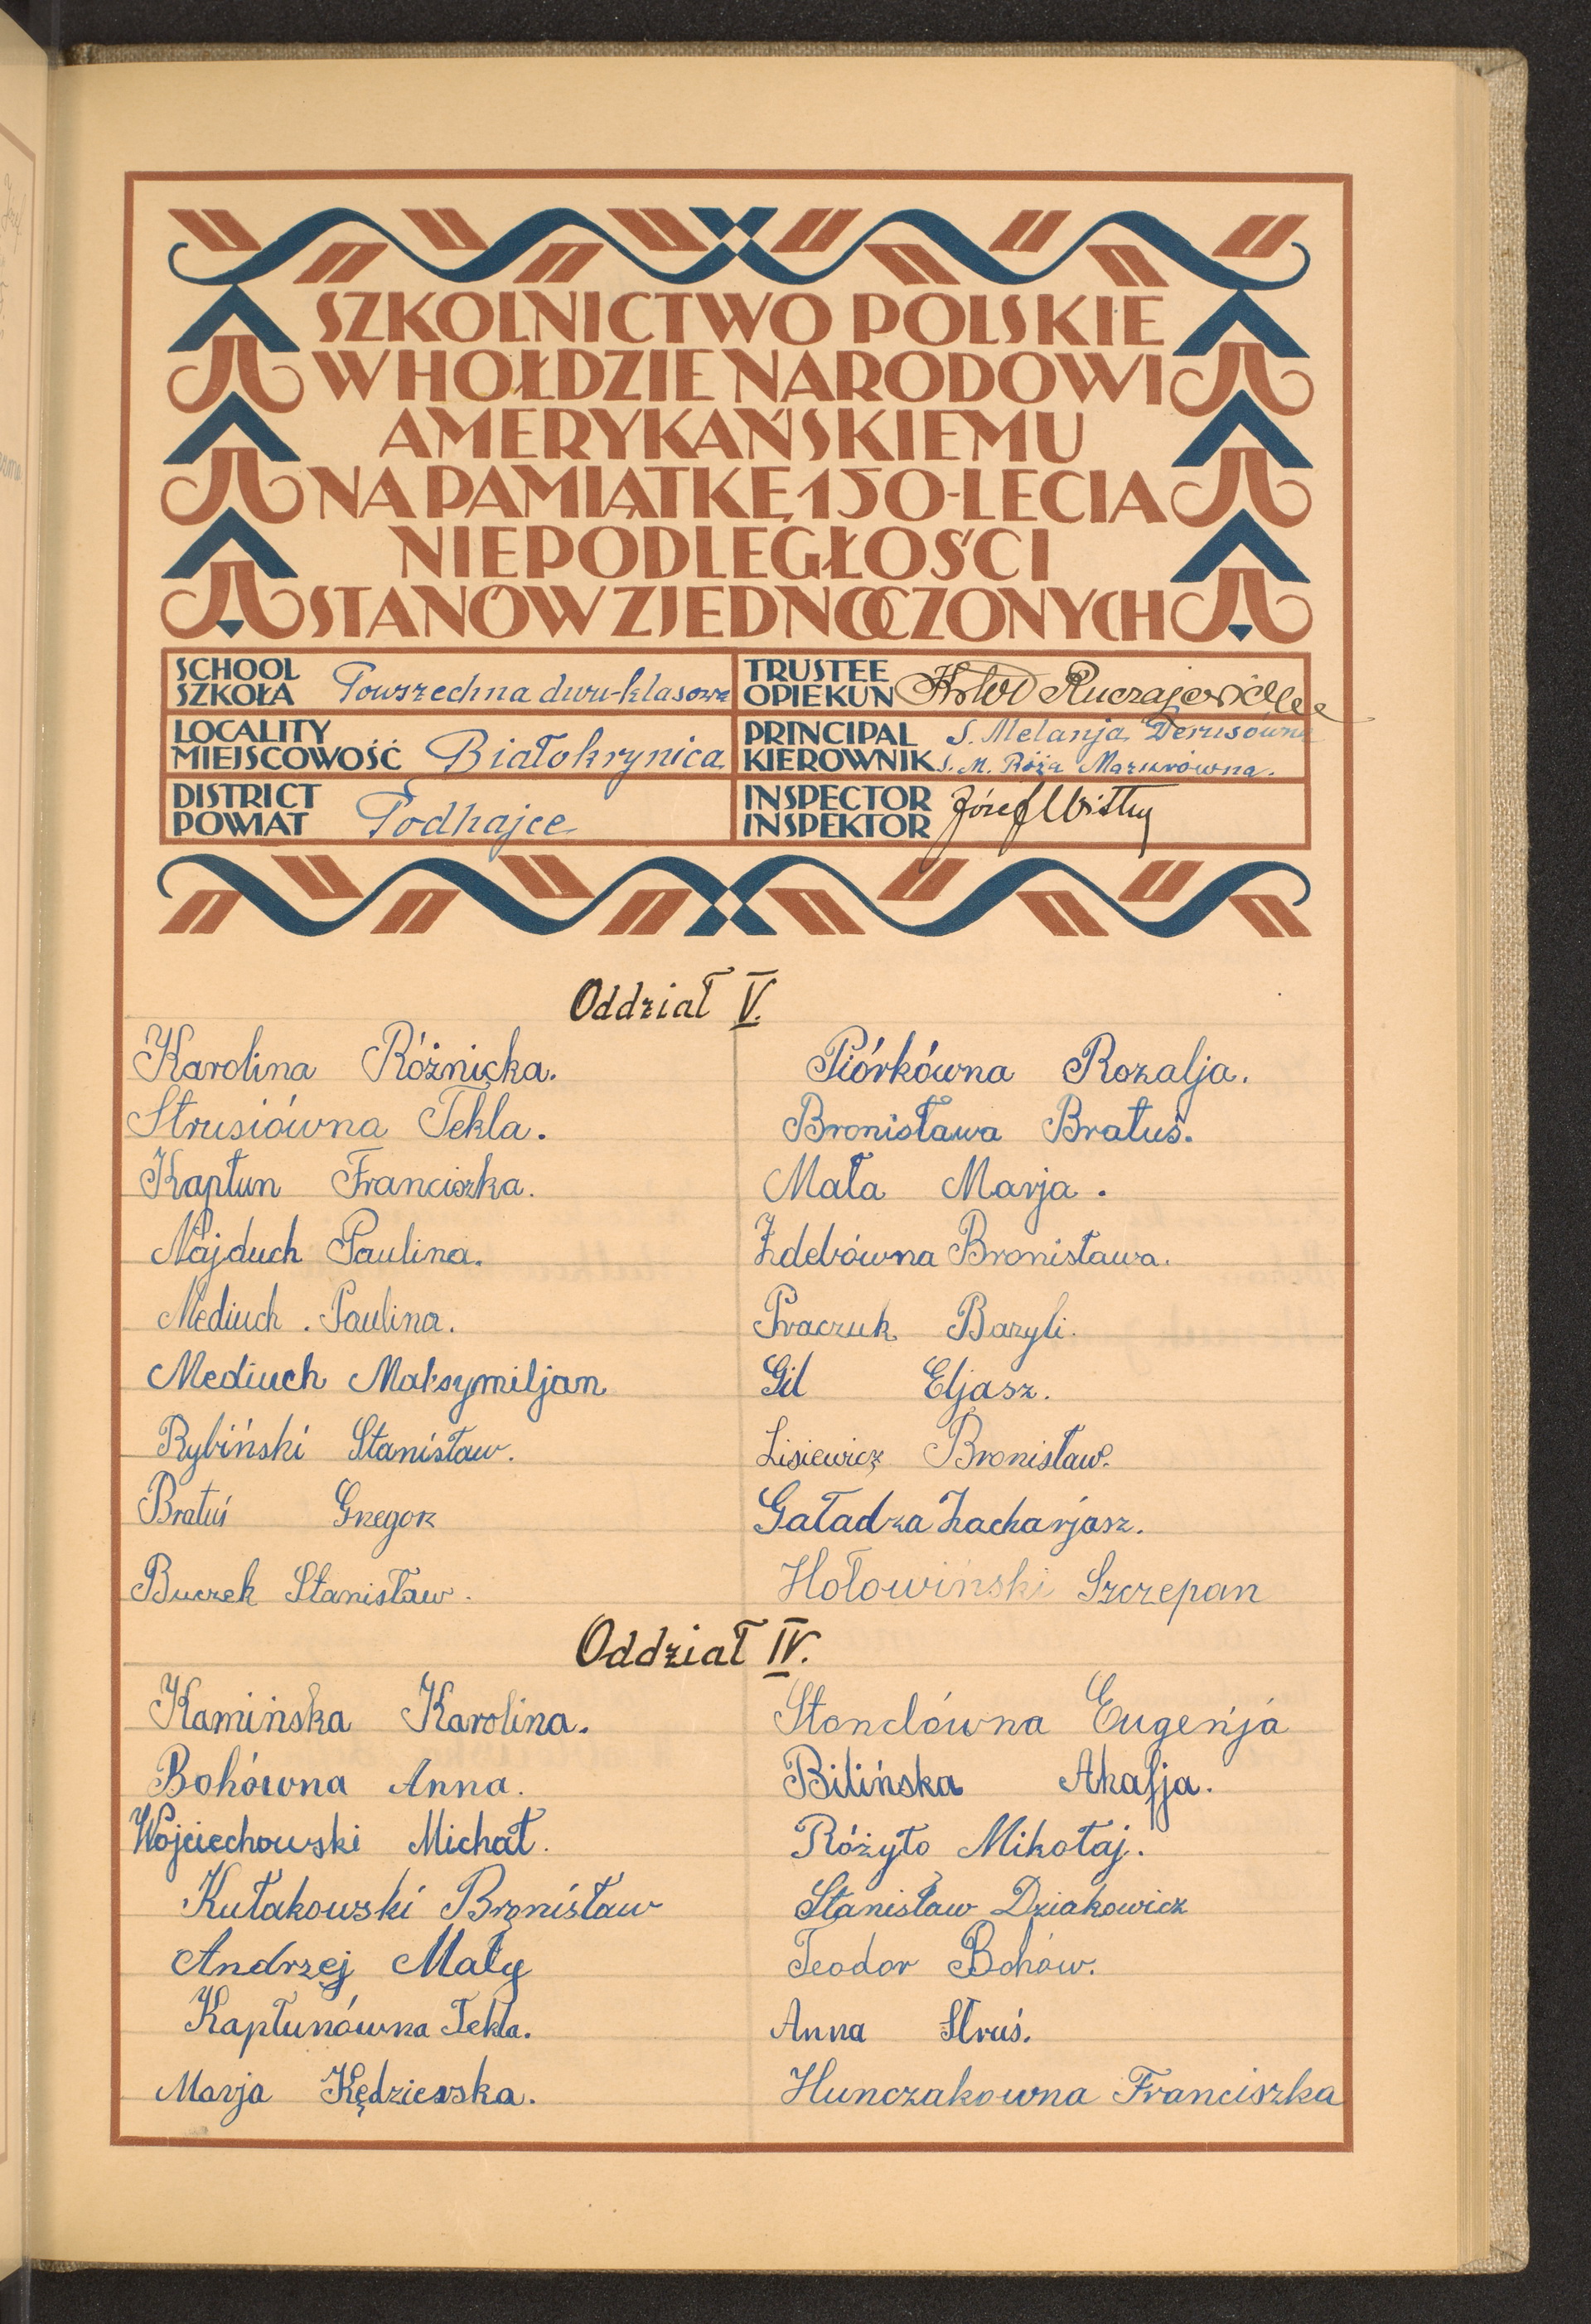 SZKOLNICTWO POLSKIE
W HOŁDZIE NARODOWI
AMERYKAŃSKIEMU
NA PAMIĄTKĘ 150-LECIA
NIEPODLEGŁOŚCI
STANÓW ZJEDNOCZONYCH
SCHOOL
SZKOŁA Powszechna dwu-klasowa
TRUSTEE
OPIEKUN
LOCALITY
MIEJSCOWOŚĆ Białokrynica
PRINCIPAL S. Melanja Derusówna
KIEROWNIK S. M. Róża Mazurówna.
DISTRICT
POWIAT Podhajce
INSPECTOR
INSPEKTOR Józef
Oddział V.
Karolina Różnicka. Piórkówna Rozalja.
Strusiówna Tekla. Bronisława Bratuś.
Kapłun Franciszka. Mała Marja.
Najduch Paulina. Zdebówna Bronisława.
Mediuch. Paulina. Praczuk Bazyli.
Mediuch Maksymiljan Gil Eljasz.
Rybiński Stanisław. Lisiewicz Bronisław.
Bratuś Gregorz Gaładza Zacharjasz.
Buczek Stanisław. Hołowiński Szczepan
Oddział IV.
Kamińska Karolina. Stondówna Eugenja
Bohówna Anna. Bilińska Akafja.
Wojciechowski Michał. Różyło Mikołaj.
Kułakowski Bronisław Stanisław Dziakowicz
Andrzej Mały Teodor Bohów.
Kapłunówna Tekla. Anna Struś.
Marja Kędzierska. Hunczakowna Franciszka